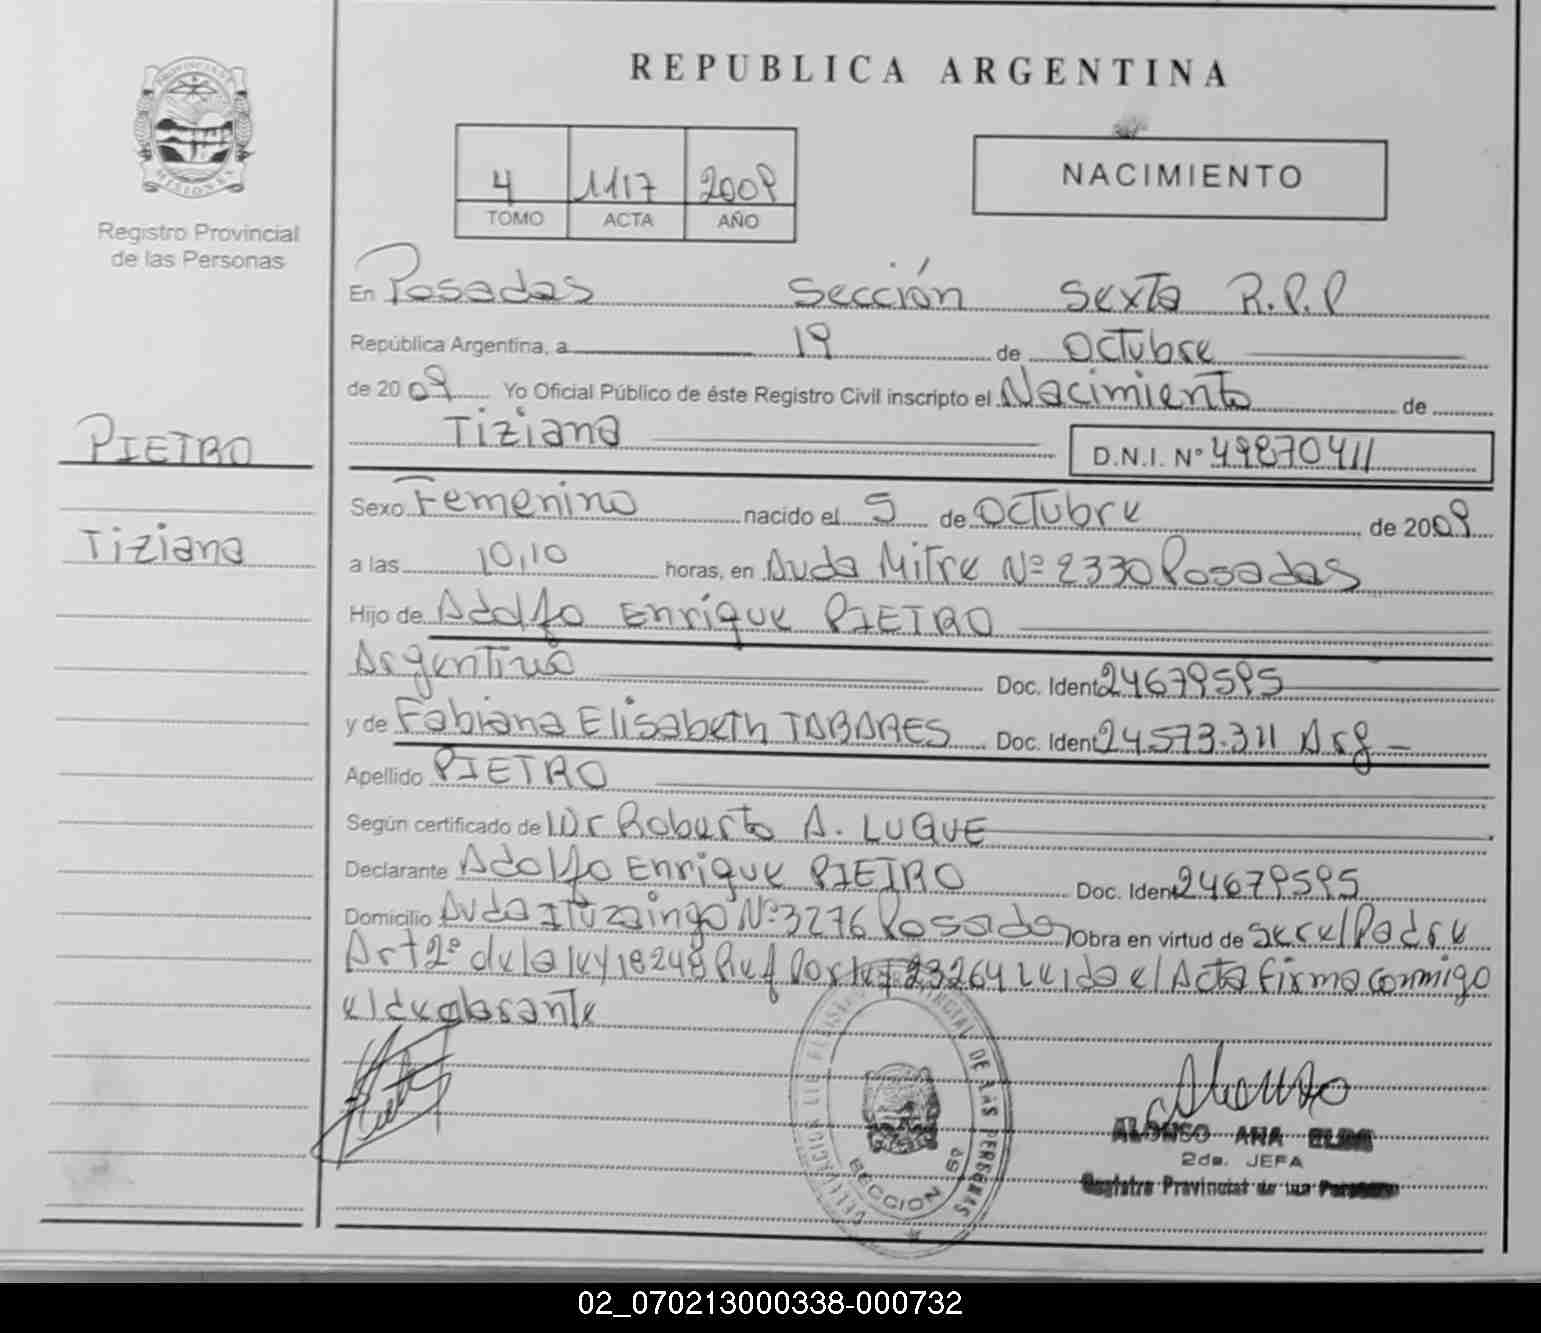 PROVINCIA DE
MISIONES
Registro Provincial
de las Personas
REPUBLICA ARGENTINA
4 1117 2009
TOMO ACTA AÑO
NACIMIENTO
En Posadas Sección Sexta R.P.P
República Argentina, a 19 de Octubre
de 2009 Yo Oficial Público de éste Registro Civil inscripto el Nacimiento de
Tiziana D.N.I. Nº 49870411
PIETRO
Tiziana
Sexo Femenino nacido el 5 de Octubre de 2009
a las 10,10 horas, en Avda Mitre Nº 2330 Posadas
Hijo de Adolfo Enrique PIETRO
Argentino Doc. Ident 24679595
y de Fabiana Elisabeth TABARES Doc. Ident 24.573.311 Arg
Apellido PIETRO
Según certificado de Dr Roberto A. LUQUE
Declarante Adolfo Enrique PIETRO Doc. Ident 24679595
Domicilio Avda Ituzaingo Nº 3276 Posadas Obra en virtud de ser el Padre
Art 2º de la ley 18248 Ref 23264 Leida el Acta firma conmigo
el declarante
REGISTRO PROVINCIAL DE LAS PERSONAS
SECCION 6ª
ALONSO ANA ELBA
2da. JEFA
Registro Provincial de las Personas
02_070213000338-000732